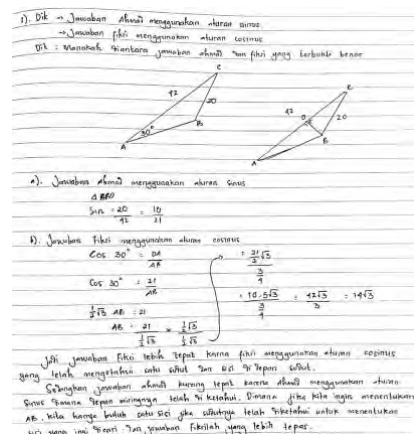 1). Dik → Jawaban Ahmad menggunakan aturan sinus
→ Jawaban fikri menggunakan aturan cosinus
Dit : Manakah diantara jawaban ahmad dan fikri yang terbukti benar
C
42
20
30°
A
B
C
42
D
20
B
A
a). Jawaban ahmad menggunakan aturan sinus
Sin = 20/42 = 10/21
b). Jawaban Fikri menggunakan aturan cosinus
Cos 30° = DA/AB
Cos 30° = 21/AB
½√3 AB = 21
AB = 21/½√3 × ½√3/½√3
= 21/2 √3 / 3/4
= 10.5√3 / 3/4 = 42√3/3 = 14√3
Jadi jawaban Fikri lebih tepat karna fikri menggunakan aturan cosinus
yang telah mengetahui satu sudut dan sisi di depan sudut.
Sedangkan jawaban ahmad kurang tepat karena ahmad menggunakan aturan
Sinus dimana depan miringnya telah diketahui. Dimana jika kita ingin menentukan
AB, kita hanya butuh satu sisi jika sudutnya telah diketahui untuk menentukan
sisi yang ingin dicari. Dan jawaban Fikrilah yang lebih tepat.